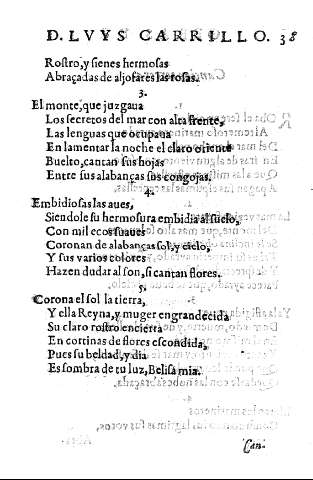 D. LVYS CARRILLO. 38
Rostro, y sienes hermosas
Abraçadas de aljofares las rosas.
3.
El monte, que juzgaua
Los secretos del mar con alta frente,
Las lenguas que ocupaua
En lamentar la noche el claro oriente
Buelto, cantan sus hojas
Entre sus alabanças sus congojas.
4.
Embidiosas las aues,
Siendole su hermosura embidia al suelo,
Con mil ecos suaues
Coronan de alabanças sol, y cielo,
Y sus varios colores
Hazen dudar al son, si cantan flores.
5.
Corona el sol la tierra,
Y ella Reyna, y muger engrandecida
Su claro rostro encierra
En cortinas de flores escondida,
Pues su beldad, y dia
Es sombra de tu luz, Belisa mia.
Can-